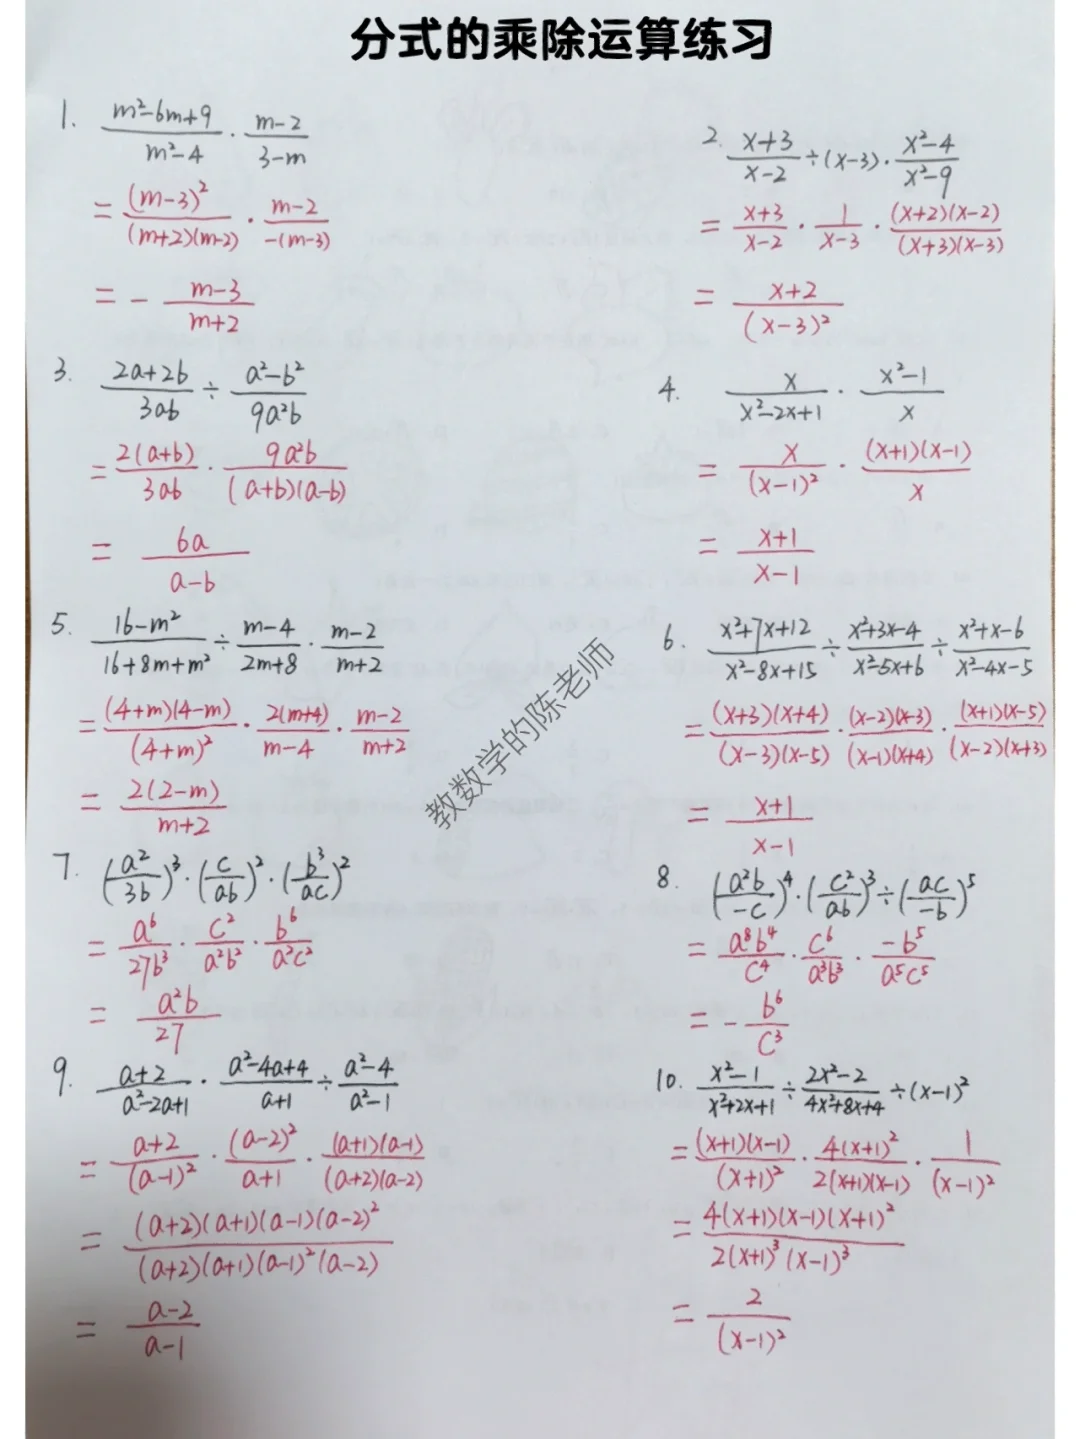 分式的乘除运算练习
1. \frac{m²-6m+9}{m²-4} · \frac{m-2}{3-m}
= \frac{(m-3)²}{(m+2)(m-2)} · \frac{m-2}{-(m-3)}
= - \frac{m-3}{m+2}
2. \frac{x+3}{x-2} ÷ (x-3) · \frac{x²-4}{x²-9}
= \frac{x+3}{x-2} · \frac{1}{x-3} · \frac{(x+2)(x-2)}{(x+3)(x-3)}
= \frac{x+2}{(x-3)²}
3. \frac{2a+2b}{3ab} ÷ \frac{a²-b²}{9a²b}
= \frac{2(a+b)}{3ab} · \frac{9a²b}{(a+b)(a-b)}
= \frac{6a}{a-b}
4. \frac{x}{x²-2x+1} · \frac{x²-1}{x}
= \frac{x}{(x-1)²} · \frac{(x+1)(x-1)}{x}
= \frac{x+1}{x-1}
5. \frac{16-m²}{16+8m+m²} ÷ \frac{m-4}{2m+8} · \frac{m-2}{m+2}
= \frac{(4+m)(4-m)}{(4+m)²} · \frac{2(m+4)}{m-4} · \frac{m-2}{m+2}
= \frac{2(2-m)}{m+2}
6. \frac{x²+7x+12}{x²-8x+15} ÷ \frac{x²+3x-4}{x²-5x+6} ÷ \frac{x²+x-6}{x²-4x-5}
= \frac{(x+3)(x+4)}{(x-3)(x-5)} · \frac{(x-2)(x-3)}{(x-1)(x+4)} · \frac{(x+1)(x-5)}{(x-2)(x+3)}
= \frac{x+1}{x-1}
教数学的陈老师
7. (\frac{a²}{3b})³ · (\frac{c}{ab})² · (\frac{b³}{ac})²
= \frac{a⁶}{27b³} · \frac{c²}{a²b²} · \frac{b⁶}{a²c²}
= \frac{a²b}{27}
8. (\frac{a²b}{-c})⁴ · (\frac{c²}{ab})³ ÷ (\frac{ac}{-b})⁵
= \frac{a⁸b⁴}{c⁴} · \frac{c⁶}{a³b³} · \frac{-b⁵}{a⁵c⁵}
= - \frac{b⁶}{c³}
9. \frac{a+2}{a²-2a+1} · \frac{a²-4a+4}{a+1} ÷ \frac{a²-4}{a²-1}
= \frac{a+2}{(a-1)²} · \frac{(a-2)²}{a+1} · \frac{(a+1)(a-1)}{(a+2)(a-2)}
= \frac{(a+2)(a+1)(a-1)(a-2)²}{(a+2)(a+1)(a-1)²(a-2)}
= \frac{a-2}{a-1}
10. \frac{x²-1}{x²+2x+1} ÷ \frac{2x²-2}{4x²+8x+4} ÷ (x-1)²
= \frac{(x+1)(x-1)}{(x+1)²} · \frac{4(x+1)²}{2(x+1)(x-1)} · \frac{1}{(x-1)²}
= \frac{4(x+1)(x-1)(x+1)²}{2(x+1)³(x-1)³}
= \frac{2}{(x-1)²}